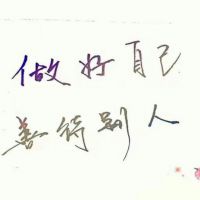 做好自己
善待别人